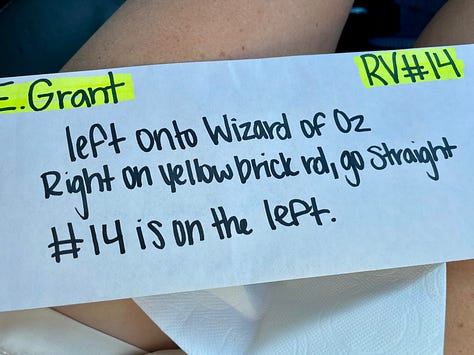 E. Grant
RV#14
left onto Wizard of Oz
Right on yellow brick rd, go straight
#14 is on the left.